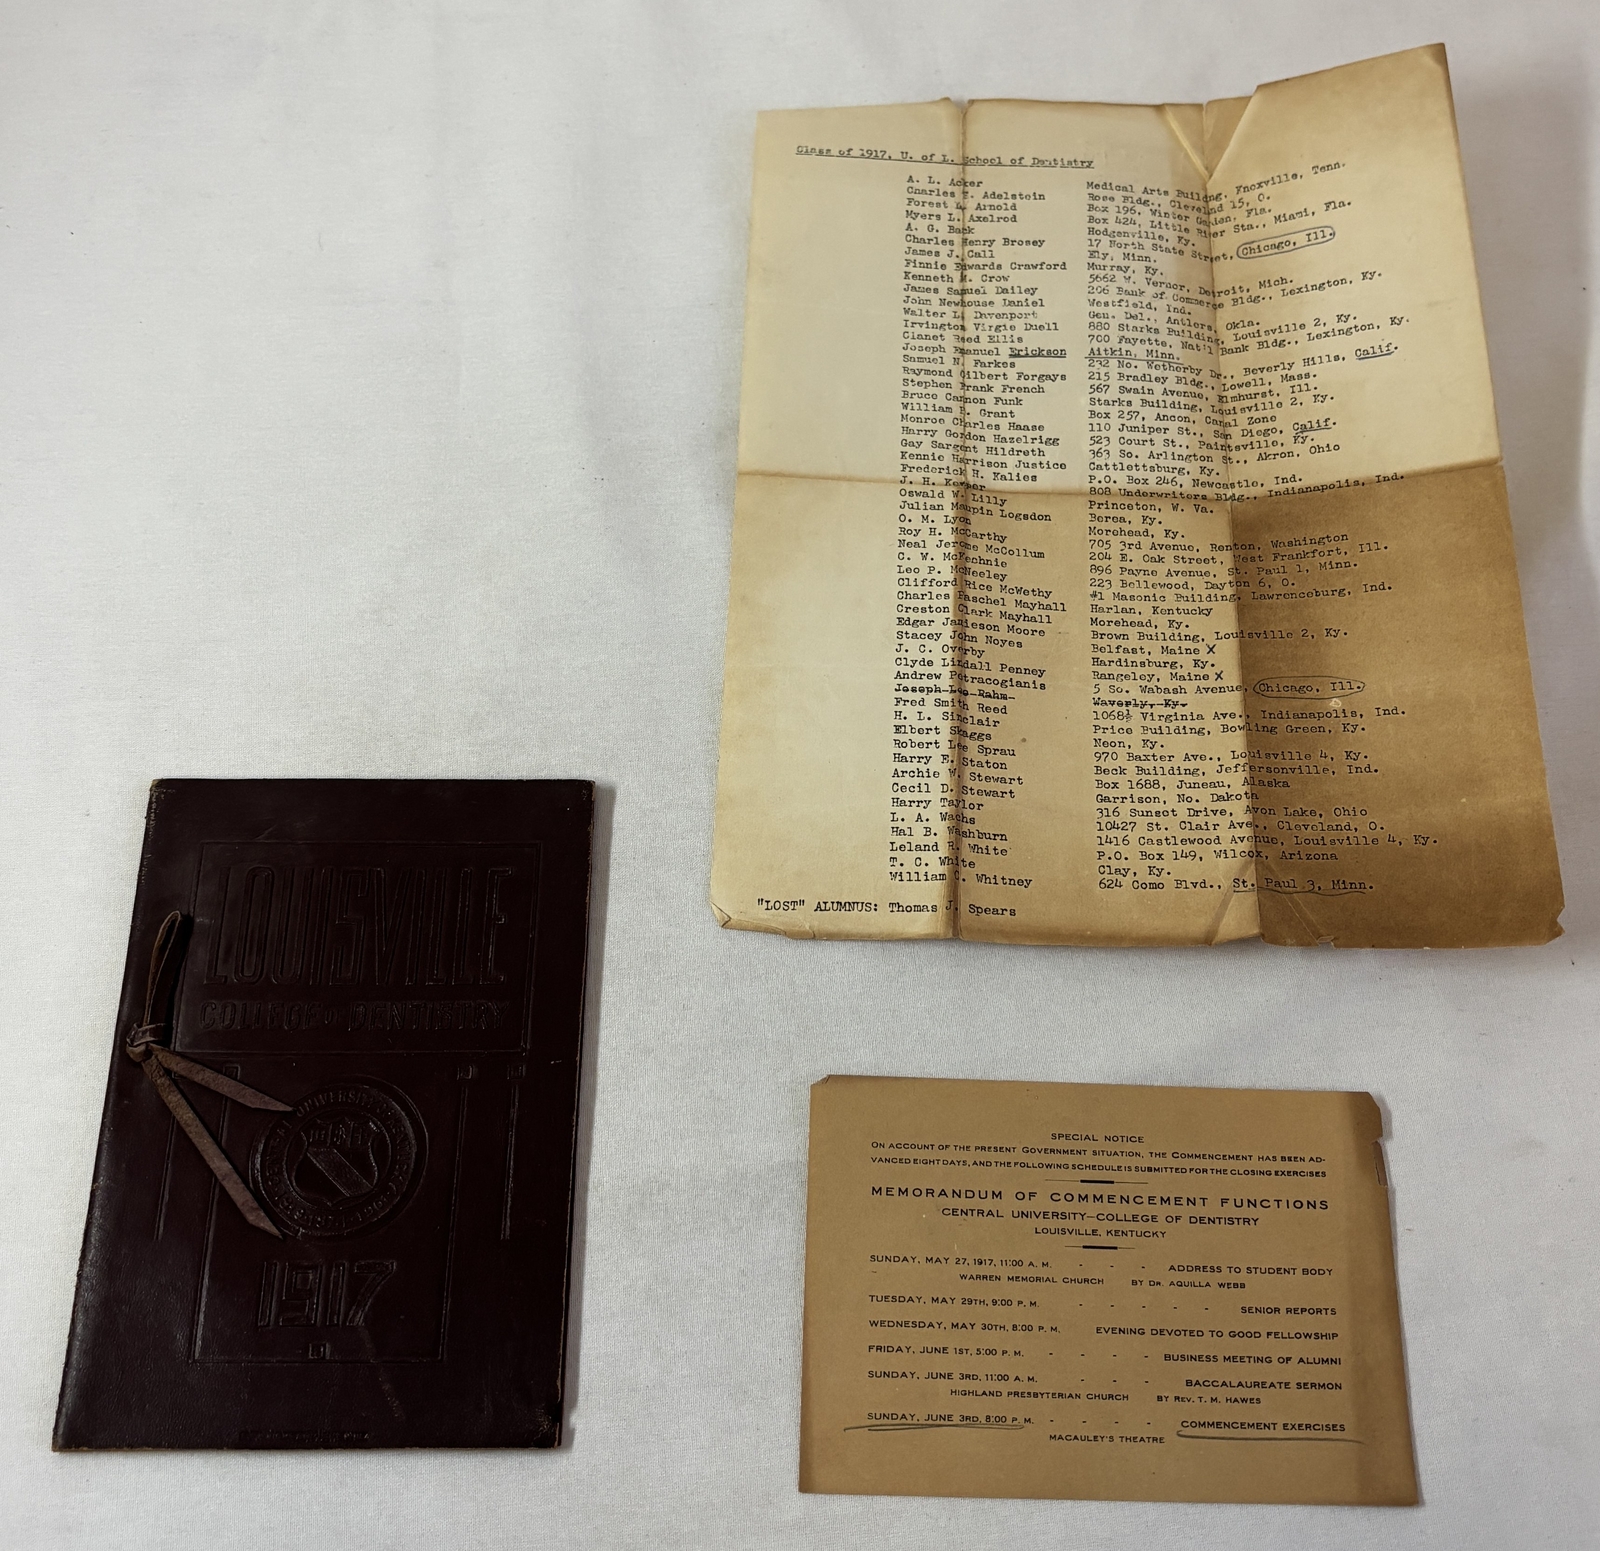 Class of 1917, U. of L. School of Dentistry
A. L. Acker Medical Arts Buildng, Knoxville, Tenn.
Charles Adelstein Rose Bldg., Cleveland 15, O.
Forest L. Arnold Box 196, Winter Garden, Fla.
Myers L. Axelrod Box 424, Little River Sta., Miami, Fla.
A. G. Back Hodgenville, Ky.
Charles Henry Brosey 17 North State Street, Chicago, Ill.
James J. Call Ely, Minn.
Finnie Edwards Crawford Murray, Ky.
Kenneth M. Crow 5662 W. Vernor, Detroit, Mich.
James Samuel Dailey 206 Bank of Commerce Bldg., Lexington, Ky.
John Newhouse Daniel Westfield, Ind.
Walter L. Davenport Gen. Del., Antlers, Okla.
Irvington Virgie Duell 880 Starks Building, Louisville 2, Ky.
Clanet Reed Ellis 700 Fayette, Nat'l Bank Bldg., Lexington, Ky.
Joseph Emanuel Erickson Aitkin, Minn.
Samuel N. Farkes 232 No. Wetherby Dr., Beverly Hills, Calif.
Raymond Gilbert Forgays 215 Bradley Bldg., Lowell, Mass.
Stephen Frank French 567 Swain Avenue, Elmhurst, Ill.
Bruce Cannon Funk Starks Building, Louisville 2, Ky.
William Grant Box 257, Ancon, Canal Zone
Monroe Charles Haase 110 Juniper St., San Diego, Calif.
Harry Gordon Hazelrigg 523 Court St., Paintsville, Ky.
Gay Sargent Hildreth 363 So. Arlington St., Akron, Ohio
Kennie Harrison Justice Cattlettsburg, Ky.
Frederick H. Kalies P.O. Box 246, Newcastle, Ind.
J. H. 808 Underwriters Bldg., Indianapolis, Ind.
Oswald W. Lilly Princeton, W. Va.
Julian Maupin Logsdon Berea, Ky.
O. M. Lyon Morehead, Ky.
Roy H. McCarthy 705 3rd Avenue, Renton, Washington
Neal Jerome McCollum 204 E. Oak Street, West Frankfort, Ill.
C. W. McKechnie 896 Payne Avenue, St. Paul 1, Minn.
Leo P. McNeeley 223 Bellewood, Dayton 6, O.
Clifford Rice McWethy #1 Masonic Building, Lawrenceburg, Ind.
Charles Paschel Mayhall Harlan, Kentucky
Creston Clark Mayhall Morehead, Ky.
Edgar Jamieson Moore Brown Building, Louisville 2, Ky.
Stacey John Noyes Belfast, Maine X
J. C. Overby Hardinsburg, Ky.
Clyde Lindall Penney Rangeley, Maine X
Andrew Petracogianis 5 So. Wabash Avenue, Chicago, Ill.
Joseph Lee Rahm Waverly, Ky.
Fred Smith Reed 1068½ Virginia Ave., Indianapolis, Ind.
H. L. Sinclair Price Building, Bowling Green, Ky.
Elbert Skaggs Neon, Ky.
Robert Lee Sprau 970 Baxter Ave., Louisville 4, Ky.
Harry E. Staton Beck Building, Jeffersonville, Ind.
Archie W. Stewart Box 1688, Juneau, Alaska
Cecil D. Stewart Garrison, No. Dakota
Harry Taylor 316 Sunset Drive, Avon Lake, Ohio
L. A. Wachs 10427 St. Clair Ave., Cleveland, O.
Hal B. Washburn 1416 Castlewood Avenue, Louisville 4, Ky.
Leland R. White P.O. Box 149, Wilcox, Arizona
T. C. White Clay, Ky.
William C. Whitney 624 Como Blvd., St. Paul 3, Minn.
"LOST" ALUMNUS: Thomas J. Spears
LOUISVILLE
COLLEGE OF DENTISTRY
1917
SPECIAL NOTICE
ON ACCOUNT OF THE PRESENT GOVERNMENT SITUATION, THE COMMENCEMENT HAS BEEN AD-
VANCED EIGHT DAYS, AND THE FOLLOWING SCHEDULE IS SUBMITTED FOR THE CLOSING EXERCISES
MEMORANDUM OF COMMENCEMENT FUNCTIONS
CENTRAL UNIVERSITY—COLLEGE OF DENTISTRY
LOUISVILLE, KENTUCKY
SUNDAY, MAY 27, 1917, 11:00 A. M. - - - ADDRESS TO STUDENT BODY
WARREN MEMORIAL CHURCH BY DR. AQUILLA WEBB
TUESDAY, MAY 29TH, 9:00 P. M. - - - - - SENIOR REPORTS
WEDNESDAY, MAY 30TH, 8:00 P. M. EVENING DEVOTED TO GOOD FELLOWSHIP
FRIDAY, JUNE 1ST, 5:00 P. M. - - - - BUSINESS MEETING OF ALUMNI
SUNDAY, JUNE 3RD, 11:00 A. M. - - - BACCALAUREATE SERMON
HIGHLAND PRESBYTERIAN CHURCH BY REV. T. M. HAWES
SUNDAY, JUNE 3RD, 8:00 P. M. - - - - COMMENCEMENT EXERCISES
MACAULEY'S THEATRE